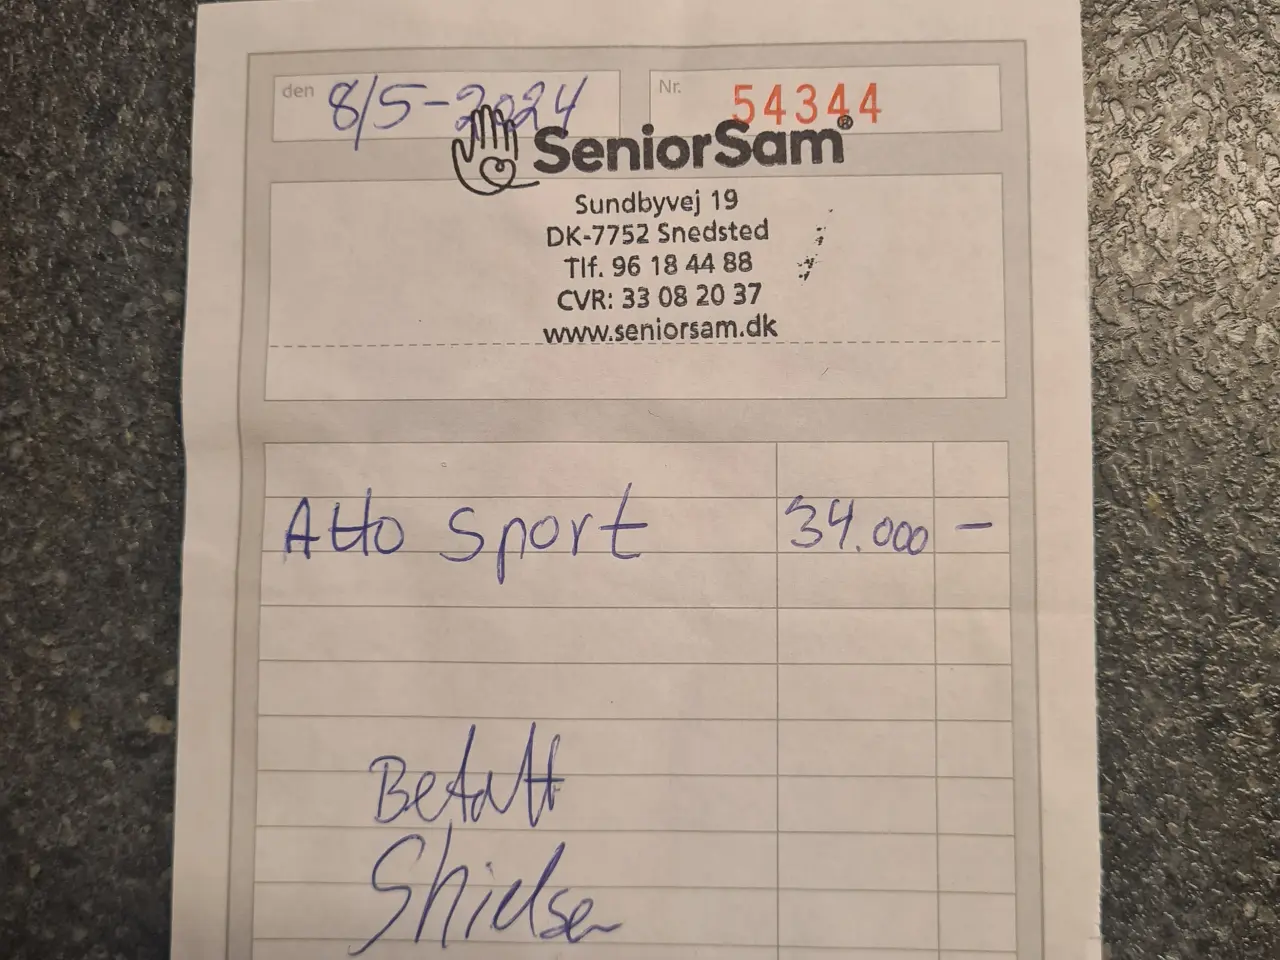 den 8/5-2024 Nr. 54344
SeniorSam®
Sundbyvej 19
DK-7752 Snedsted
Tlf. 96 18 44 88
CVR: 33 08 20 37
www.seniorsam.dk
Atto Sport 34.000 -
Betalt